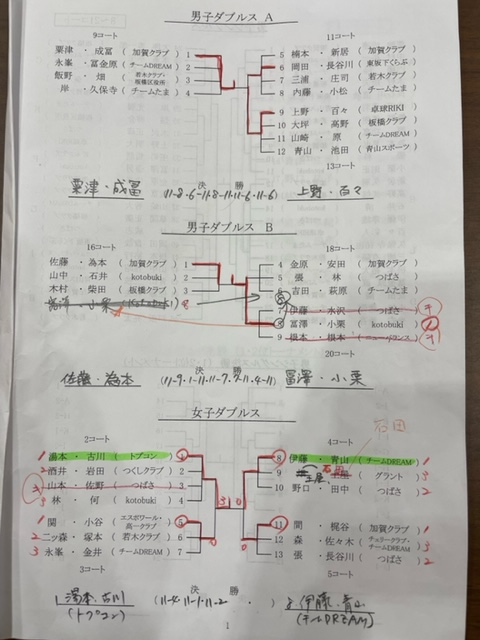 男子ダブルス A
9コート
11コート
粟津 ・ 成冨 ( 加賀クラブ ) 1
永峯 ・ 冨金原 ( チームDREAM ) 2
飯野 ・ 畑 ( 若木クラブ・板橋区役所 ) 3
岸 ・ 久保寺 ( チームたま ) 4
5 楠本 ・ 新居 ( 加賀クラブ )
6 岡田 ・ 長谷川 ( 東坂下くらぶ )
7 三浦 ・ 庄司 ( 若木クラブ )
8 内藤 ・ 小松 ( チームたま )
9 上野 ・ 百々 ( 卓球RIKI )
10 大坪 ・ 高野 ( 板橋クラブ )
11 山崎 ・ 原 ( チームDREAM )
12 青山 ・ 池田 ( 青山スポーツ )
13コート
決 勝
粟津・成冨 (11-8・6-11・8-11・11-6・11-6) 上野・百々
男子ダブルス B
16コート
18コート
佐藤 ・ 為本 ( 加賀クラブ ) 1
山中 ・ 石井 ( kotobuki ) 2
木村 ・ 柴田 ( 板橋クラブ ) 3
4 金原 ・ 安田 ( 加賀クラブ )
5 張 ・ 林 ( つばさ )
6 吉田 ・ 萩原 ( チームたま )
7 伊藤 ・ 水沢 ( つばさ )
8 冨澤 ・ 小栗 ( kotobuki )
9 根本 ・ 根本 ( ニューグランス )
20コート
決 勝
佐藤・為本 冨澤・小栗
女子ダブルス
石田
2コート
4コート
1 湯本 ・ 古川 ( トプコン ) 1
2 酒井 ・ 岩田 ( つくしクラブ ) 2
山本 ・ 佐野 ( つばさ ) 3
3 林 ・ 何 ( kotobuki ) 4
1 関 ・ 小谷 ( エスポワール・高一クラブ ) 5
2 二ッ森 ・ 塚本 ( 若木クラブ ) 6
3 永峯 ・ 金井 ( チームDREAM ) 7
8 伊藤 ・ 青山 ( チームDREAM ) 1
9 石田 ( グラント ) 3
10 野口 ・ 田中 ( つばさ ) 2
11 間 ・ 梶谷 ( 加賀クラブ ) 1
12 森 ・ 佐々木 ( チェリークラブ・チームDREAM ) 3
13 張 ・ 長谷川 ( つばさ ) 2
3コート
5コート
決 勝
湯本・古川 (11-4・11-1・11-2 ・ ) 伊藤・青山
(トプコン) (チームDREAM)
1